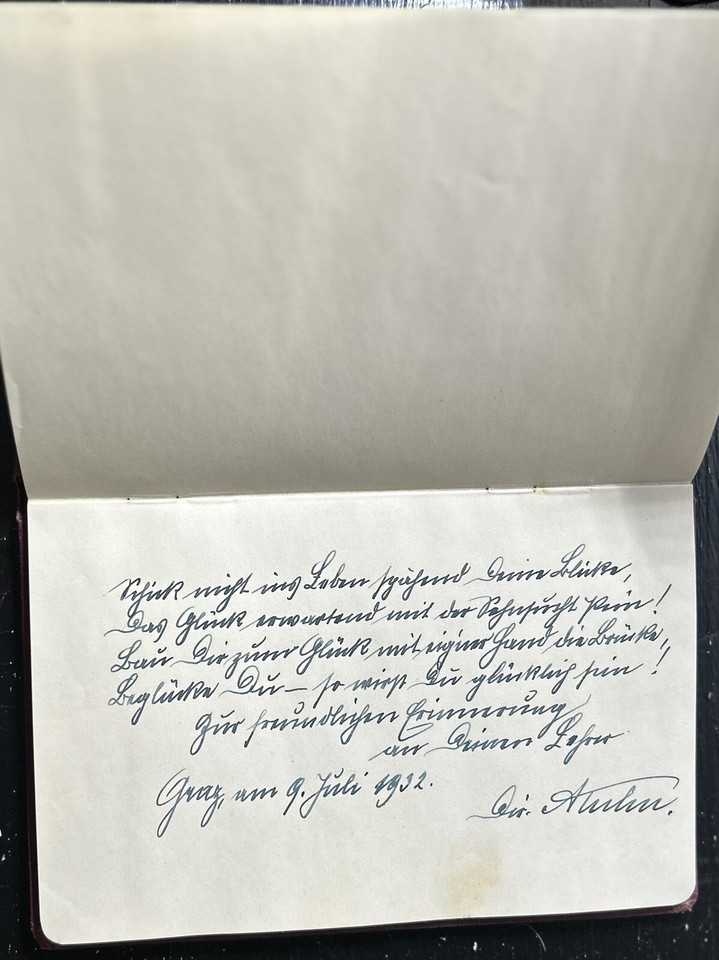 Schick nicht ins Leben spähend Deine Blicke,
Das Glück erwartend mit der Sehnsucht Pein!
Bau Dir zum Glück mit eigner Hand die Brücke,
Beglücke Du – so wirst Du glücklich sein!
Zur freundlichen Erinnerung
an Deinen Lehrer
Graz, am 9. Juli 1932.
Dir.